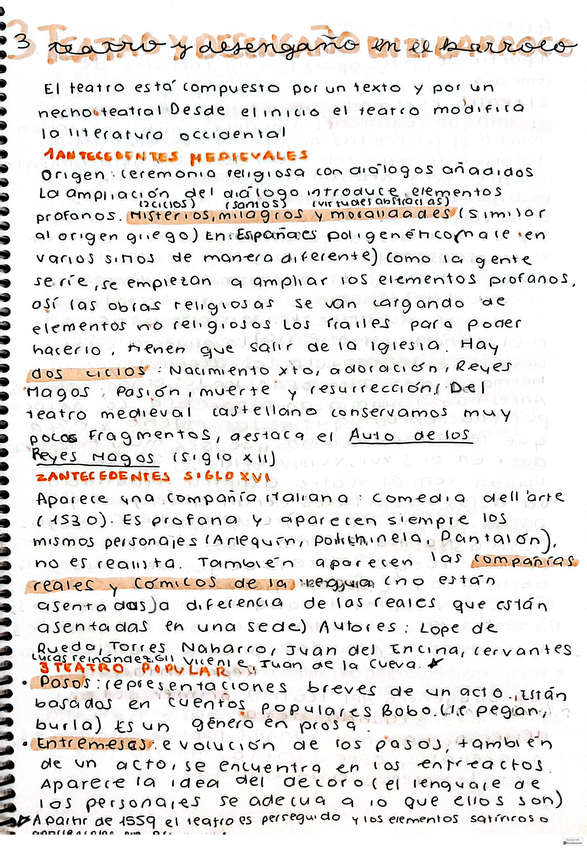 3 Teatro y desengaño en el barroco
El teatro está compuesto por un texto y por un
hecho teatral Desde el inicio el teatro modifica
la literatura occidental
1 ANTECEDENTES MEDIEVALES
Origen: ceremonia religiosa con diálogos añadidos
La ampliación del diálogo introduce elementos
(2 ciclos) (santos) (virtudes abstractas)
profanos. Misterios, milagros y moralidades (similar
al origen griego) En España es poligenético (nace en
varios sitios de manera diferente) como la gente
se ríe, se empiezan a ampliar los elementos profanos,
así las obras religiosas se van cargando de
elementos no religiosos Los frailes para poder
hacerlo, tienen que salir de la Iglesia. Hay
dos ciclos: Nacimiento xto, adoración, Reyes
Magos. Pasión, muerte y resurrección. Del
teatro medieval castellano conservamos muy
pocos fragmentos, destaca el Auto de los
Reyes Magos (siglo XII)
2 ANTECEDENTES SIGLO XVI
Aparece una compañía italiana: comedia dell'arte
(1530). Es profana y aparecen siempre los
mismos personajes (Arlequín, Polichinela, Pantalón),
no es realista. También aparecen las compañías
reales y cómicos de la legua (no están
asentadas) a diferencia de las reales que están
asentadas en una sede) Autores: Lope de
Rueda, Torres Naharro, Juan del Encina, Cervantes
Lucas Fernández, Gil Vicente, Juan de la Cueva.
3 TEATRO POPULAR
• Pasos: representaciones breves de un acto. Están
basados en cuentos populares Bobo. (le pegan,
burla) Es un género en prosa.
• Entremeses: evolución de los pasos, también
de un acto, se encuentra en los entreactos
Aparece la idea del decoro (el lenguaje de
los personajes se adecua a lo que ellos son)
A partir de 1559 el teatro es perseguido y los elementos satíricos o